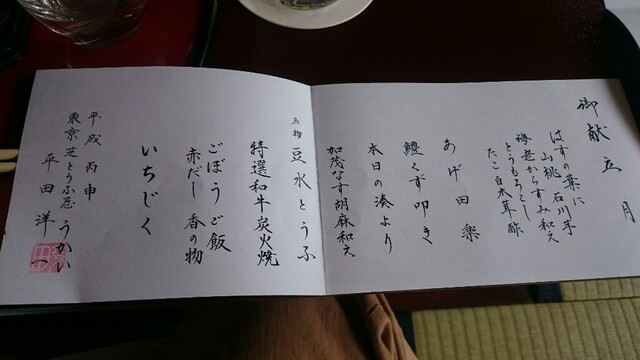 御献立
月
はすの葉に
山桃 石川芋
海老からすみ和え
とうもろこし
たこ白木茸酢
あげ田楽
鱧くず叩き
本日の湊より
加茂なす胡麻和え
名物 豆水とうふ
特選和牛炭火焼
ごぼうご飯
赤だし 香の物
いちじく
平成丙申
東京芝とうふ屋うかい
平田洋一